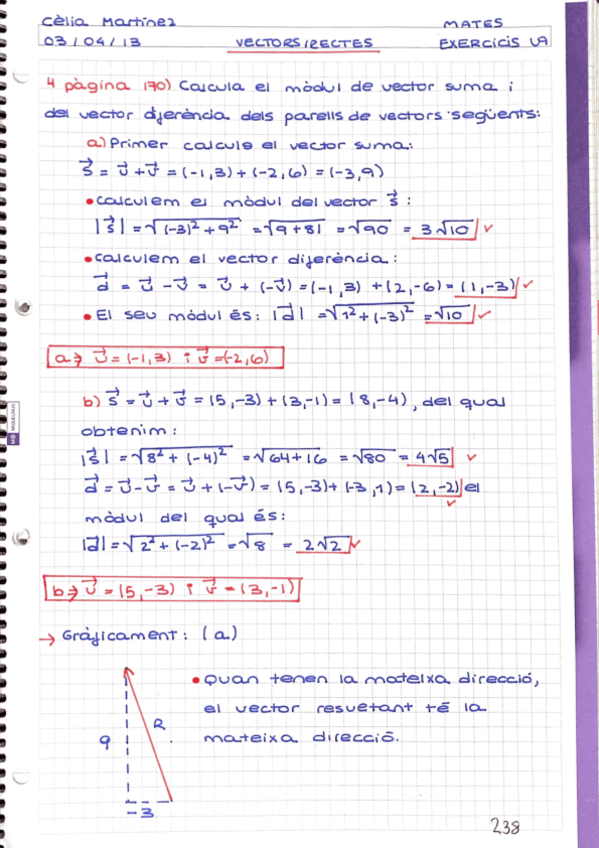 Cèlia Martínez MATES
03/04/13 VECTORS/RECTES EXERCICIS U9
4 pàgina 170) Calcula el mòdul de vector suma i
del vector diferència dels parells de vectors següents:
a) Primer calculo el vector suma:
S⃗ = u⃗ + v⃗ = (-1,3) + (-2,6) = (-3,9)
• Calculem el mòdul del vector s⃗ :
|s⃗| = √(-3)² + 9² = √9+81 = √90 = 3√10 ✓
• Calculem el vector diferència:
d⃗ = u⃗ - v⃗ = u⃗ + (-v⃗) = (-1,3) + (2,-6) = (1,-3) ✓
• El seu mòdul és: |d⃗| = √1² + (-3)² = √10 ✓
a ⇒ u⃗ = (-1,3) i v⃗ = (-2,6)
b) s⃗ = u⃗ + v⃗ = (5,-3) + (3,-1) = (8,-4), del qual
obtenim:
|s⃗| = √8² + (-4)² = √64+16 = √80 = 4√5 ✓
d⃗ = u⃗ - v⃗ = u⃗ + (-v⃗) = (5,-3) + (-3,1) = (2,-2) el ✓
mòdul del qual és:
|d⃗| = √2² + (-2)² = √8 = 2√2 ✓
b ⇒ u⃗ = (5,-3) i v⃗ = (3,-1)
→ Gràficament: (a)
• Quan tenen la mateixa direcció,
el vector resuetant té la
mateixa direcció.
9
R
-3
238